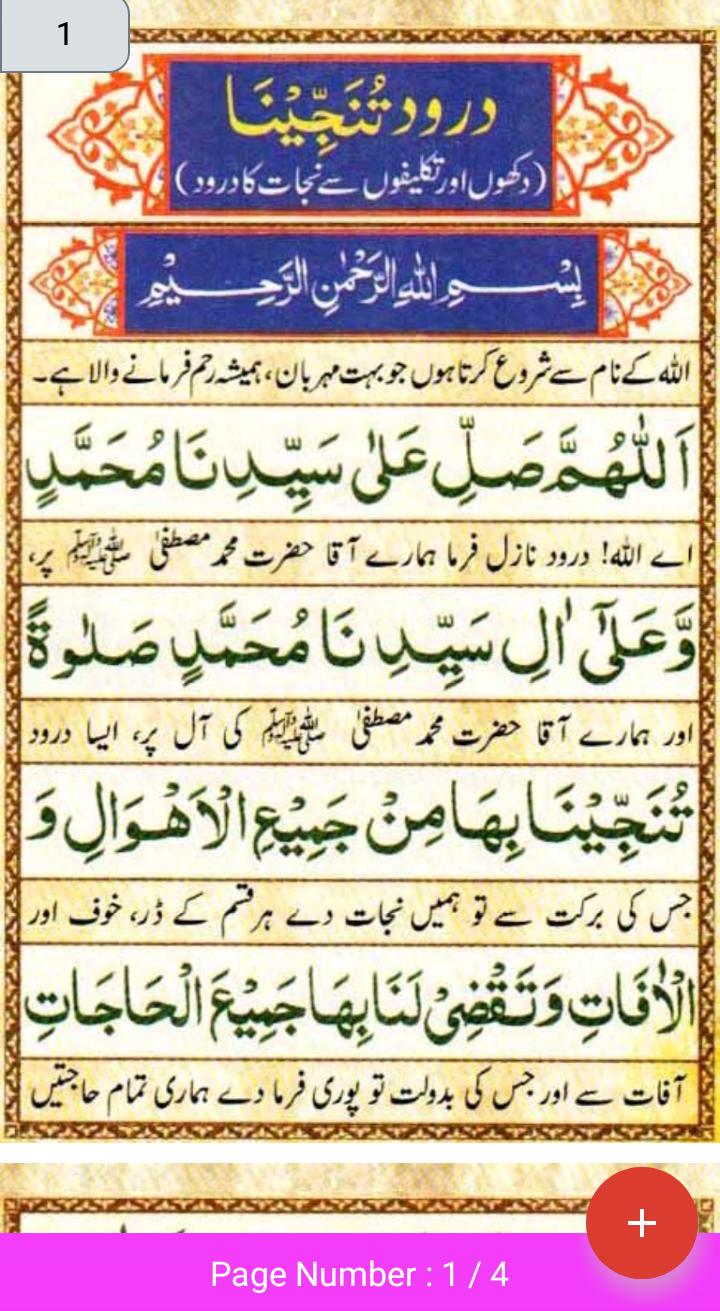 1
درود تُنَجِّیْنَا
(دکھوں اور تکلیفوں سے نجات کا درود)
بِسْمِ اللهِ الرَّحْمٰنِ الرَّحِيْمِ
الله کے نام سے شروع کرتا ہوں جو بہت مہربان، ہمیشہ رحم فرمانے والا ہے۔
اَللّٰهُمَّ صَلِّ عَلٰى سَيِّدِنَا مُحَمَّدٍ
اے الله! درود نازل فرما ہمارے آقا حضرت محمد مصطفیٰ ﷺ پر،
وَّعَلٰٓى اٰلِ سَيِّدِنَا مُحَمَّدٍ صَلٰوةً
اور ہمارے آقا حضرت محمد مصطفیٰ ﷺ کی آل پر، ایسا درود
تُنَجِّيْنَا بِهَا مِنْ جَمِيْعِ الْاَهْوَالِ وَ
جس کی برکت سے تو ہمیں نجات دے ہر قسم کے ڈر، خوف اور
الْاٰفَاتِ وَتَقْضِيْ لَنَا بِهَا جَمِيْعَ الْحَاجَاتِ
آفات سے اور جس کی بدولت تو پوری فرما دے ہماری تمام حاجتیں
+
Page Number : 1 / 4